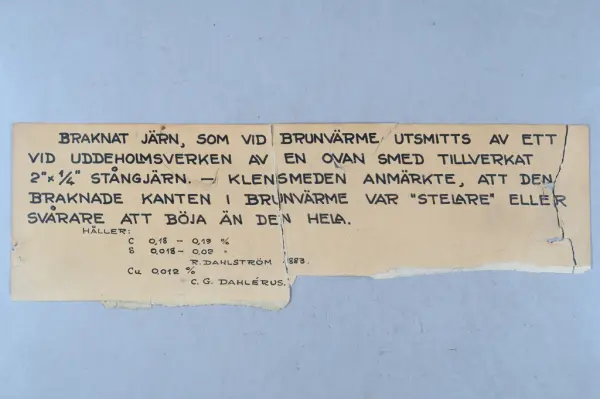 BRAKNAT JÄRN, SOM VID BRUNVÄRME UTSMITTS AV ETT
VID UDDEHOLMSVERKEN AV EN OVAN SMED TILLVERKAT
2"x 1/4" STÅNGJÄRN. – KLENSMEDEN ANMÄRKTE, ATT DEN
BRAKNADE KANTEN I BRUNVÄRME VAR "STELARE" ELLER
SVÅRARE ATT BÖJA ÄN DEN HELA.
HÅLLER:
C 0,18 – 0,19 %
S 0,018 – 0,02 "
R. DAHLSTRÖM 1883.
Cu 0,012 %
C. G. DAHLÉRUS.